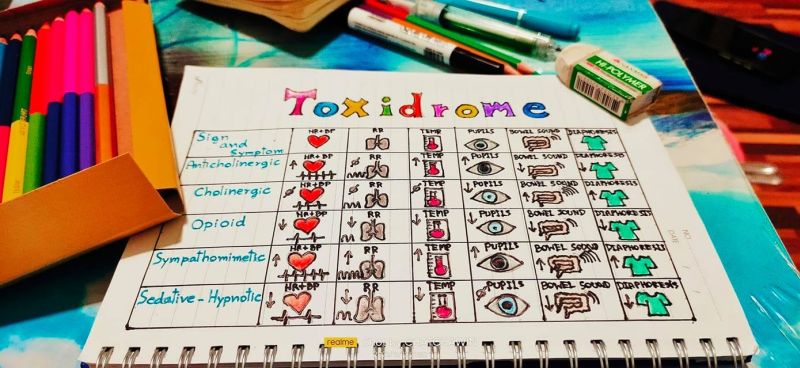 Toxidrome
Sign and Symptom HR+BP RR TEMP PUPILS BOWEL SOUND DIAPHORESIS
Anticholinergic ↑ HR+BP ∅ RR ↑ TEMP ↑ PUPILS ↓ BOWEL SOUND ↓ DIAPHORESIS
Cholinergic ∅ HR+BP ∅ RR ∅ TEMP ↓ PUPILS ↑ BOWEL SOUND ↑ DIAPHORESIS
Opioid ↓ HR+BP ↓ RR ↓ TEMP ↓ PUPILS ↓ BOWEL SOUND ↓ DIAPHORESIS
Sympathomimetic ↑ HR+BP ↑ RR ↑ TEMP ↑ PUPILS ↑ BOWEL SOUND ↑ DIAPHORESIS
Sedative-Hypnotic ↓ HR+BP ↓ RR ↓ TEMP ∅ PUPILS ↓ BOWEL SOUND ↓ DIAPHORESIS
HI-POLYMER
NO.
DATE
realme